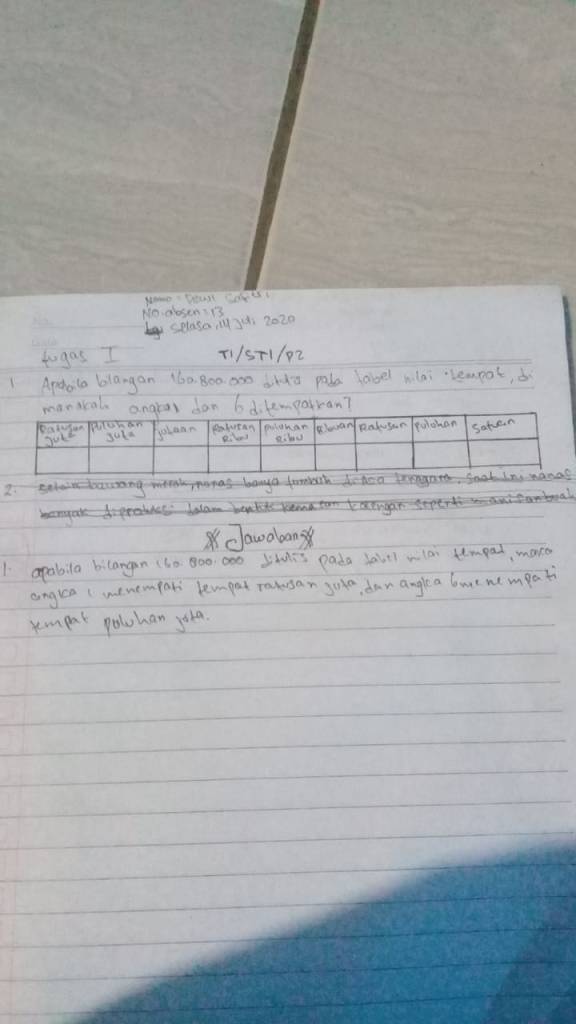 Nama : Dewi Safitri
No. absen : 13
Selasa, 14 juli 2020
tugas I T1/ST1/P2
1. Apabila bilangan 160.800.000 ditulis pada tabel nilai tempat, di
manakah angka dan 6 ditempatkan?
Ratusan juta puluhan juta jutaan Ratusan Ribu puluhan Ribu Ribuan Ratusan puluhan satuan
2. selain bawang merah, nanas banya tumbuh di Asia tenggara, saat ini nanas
banyak diproduksi dalam bentuk kemasan seperti manisan buah
Jawaban
1. apabila bilangan 160.800.000 ditulis pada tabel nilai tempat, maca
angka 1 menempati tempat ratusan juta, dan angka 6 menempati
tempat puluhan juta.